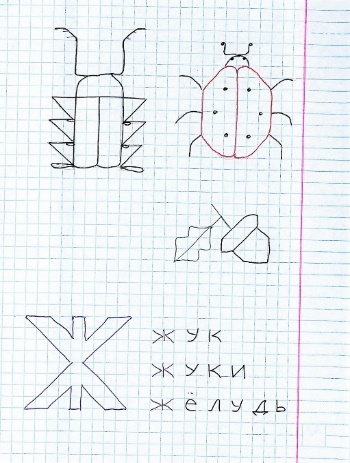 Ж
ЖУК
ЖУКИ
ЖЁЛУДЬ